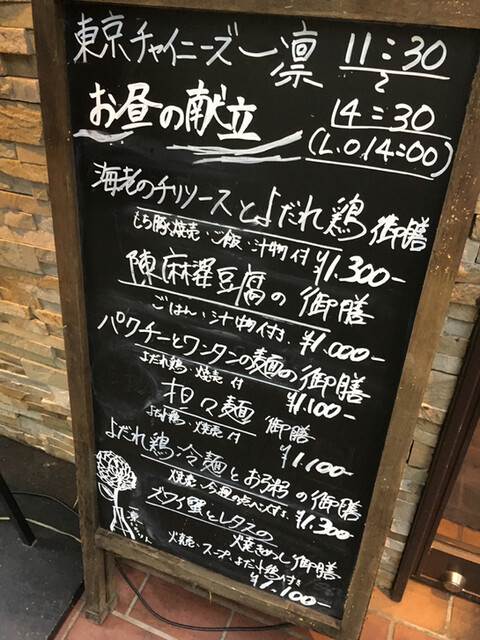 東京チャイニーズ一凛
11:30
〜
14:30
(L.O 14:00)
お昼の献立
海老のチリソースとよだれ鶏 御膳
もち豚焼売・ご飯・汁物付 ¥1.300-
陳麻婆豆腐の御膳
ごはん・汁物付き ¥1.000-
パクチーとワンタンの麺の御膳
よだれ鶏・焼売 付 ¥1.100-
担々麺 御膳
よだれ鶏・焼売 付 ¥1.100-
よだれ鶏冷麺とお粥の御膳
焼売・今週の点心付き ¥1.300-
ズワイ蟹とレタスの焼きめし御膳
焼売・スープ・よだれ鶏付き ¥1.100-